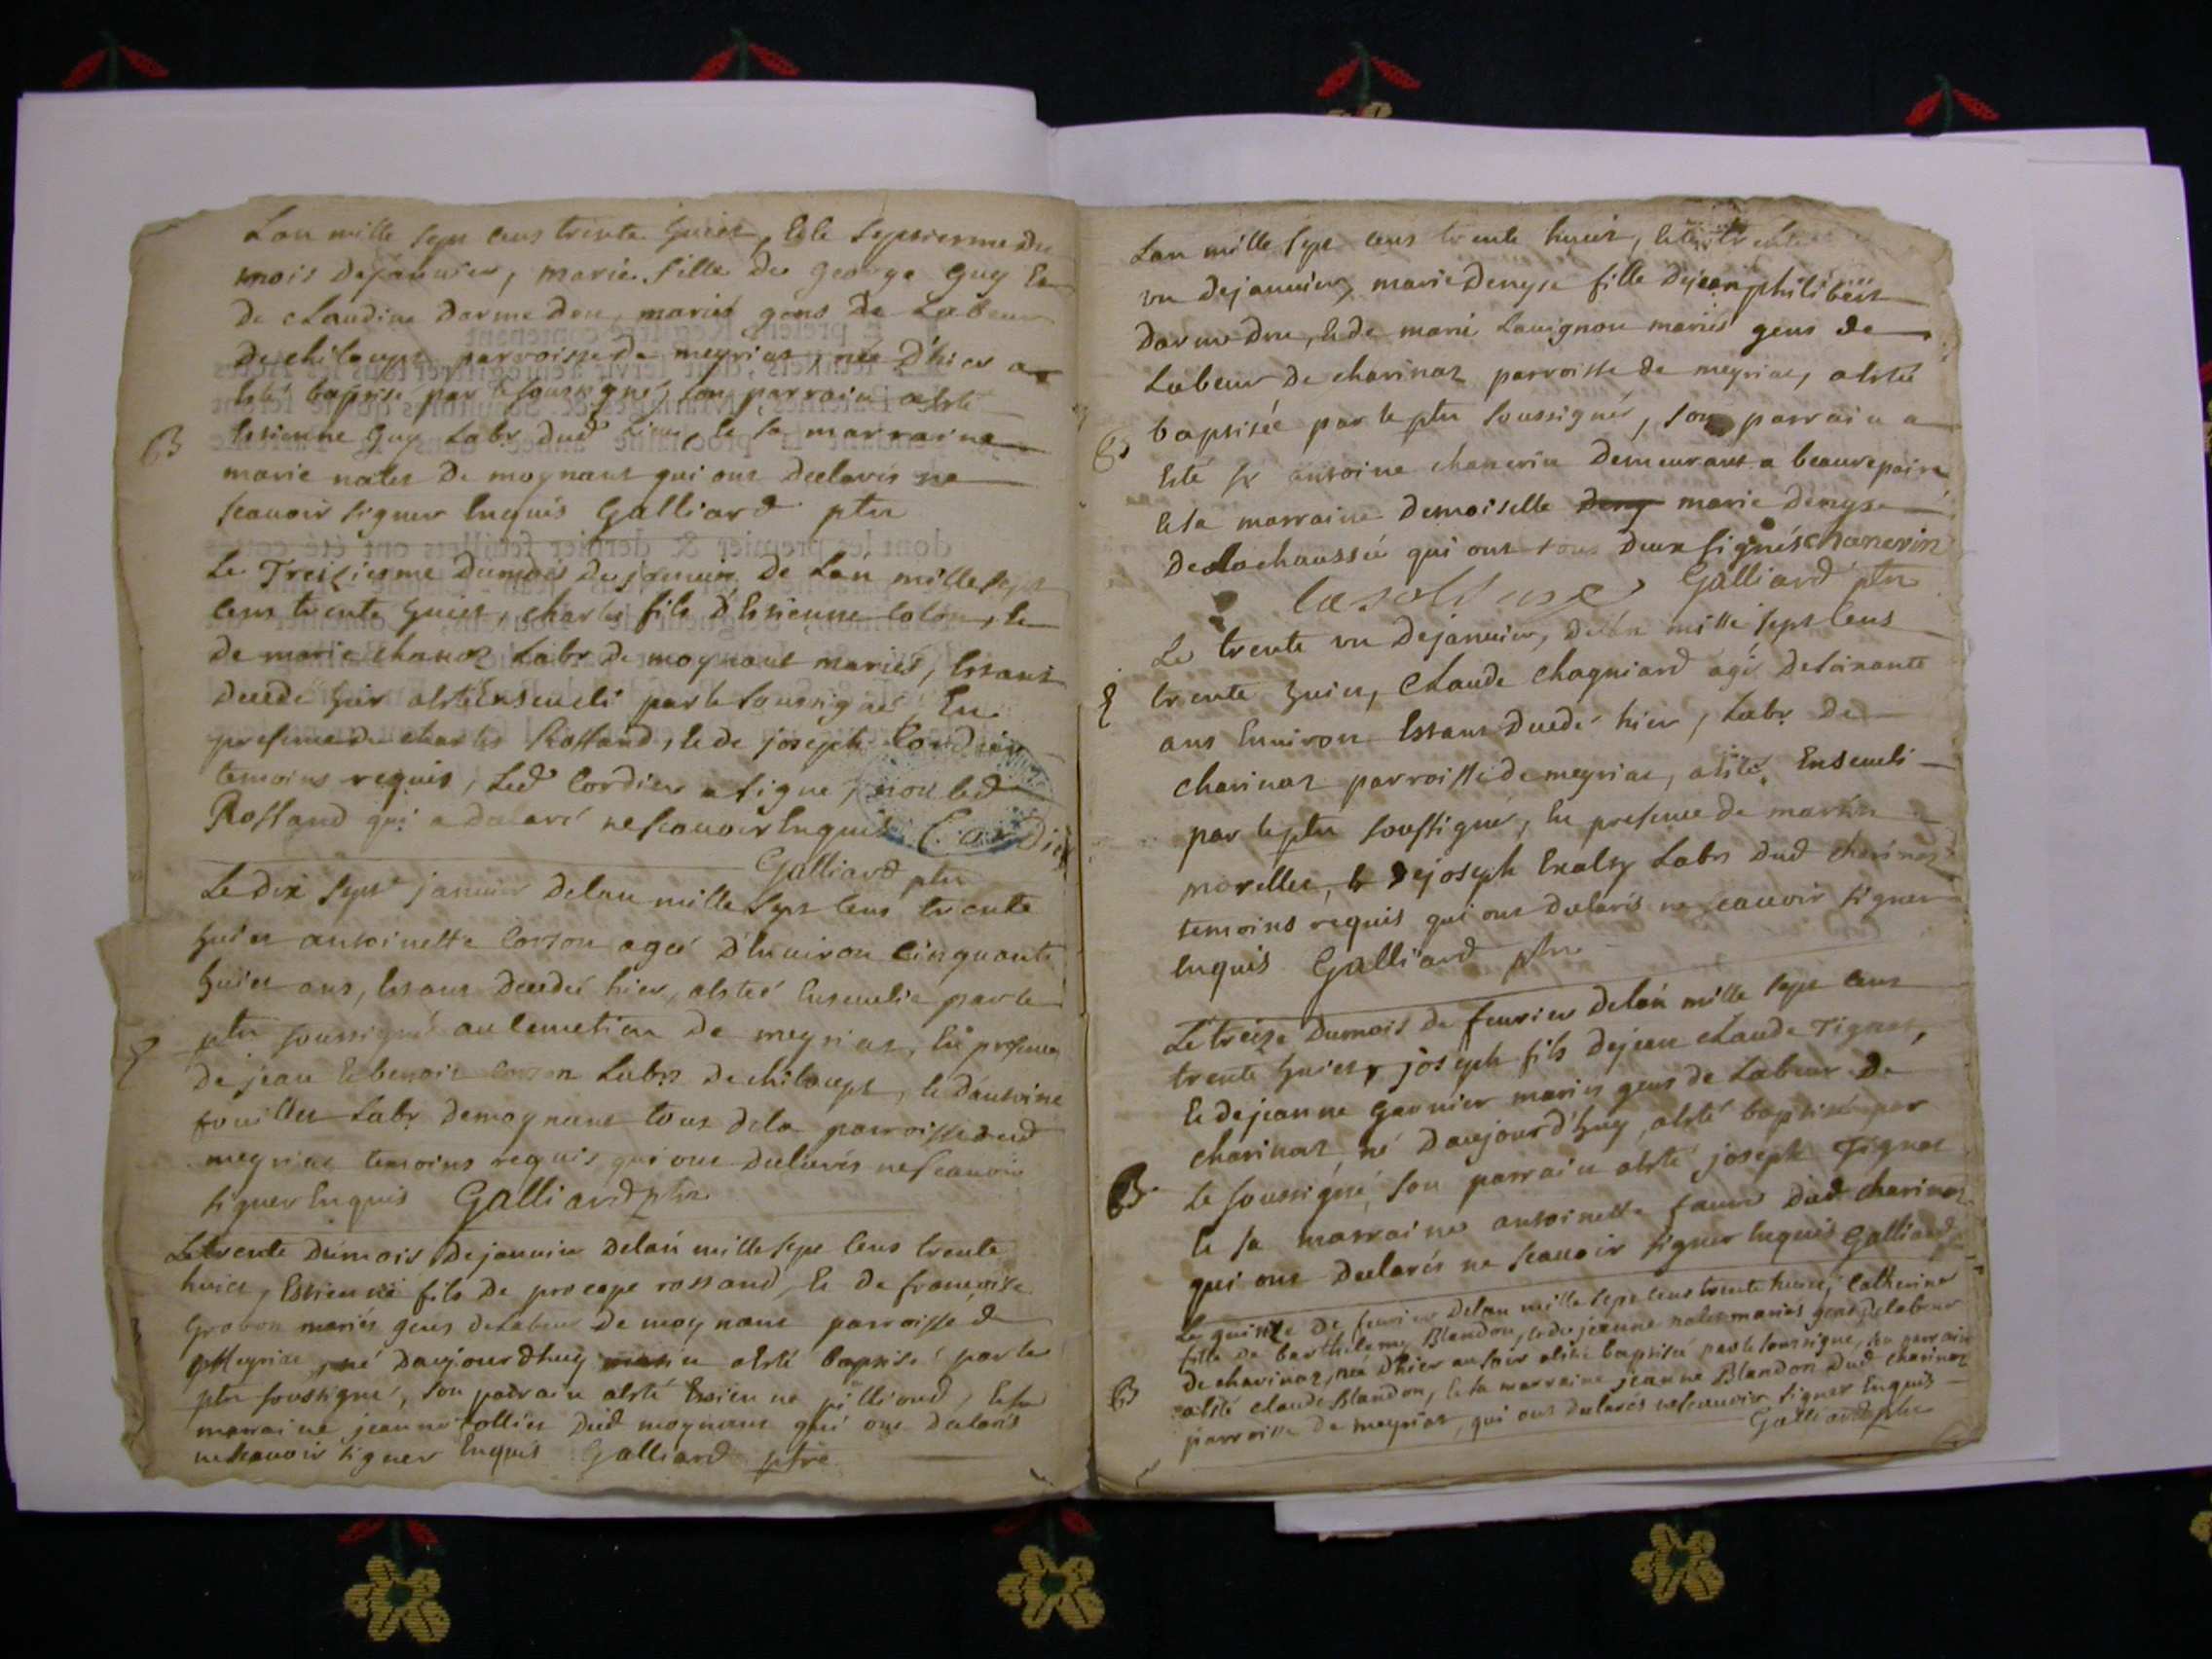 Lan mille sept cens trente huict, & le septiesme du
mois de janvier, marie fille de george Guy &
de claudine darmedru, mariés gens de Labeur
de chiloup parroisse de meyriat, née d'hier a
esté baptisé par le soussigné, son parrain a esté
B Estienne Guy Labr dud lieu, & sa marraine
marie nalet de moynant qui ont declarés ne
scauoir signer Enquis Galliard ptre
Le Treiziesme du mois de januier de Lan mille sept
cens trente huict, charles fils d'Estienne colon, &
de marie chanoz Labr de moynant mariés, Estant
decedé hier a esté Enseueli par le soussigné En
presence de charles Rossand, & de joseph Cordier
temoins requis, Led Cordier a signe, non led
Rossand qui a declaré ne scauoir Enquis Cordier
Galliard ptre
Le dix sept januier de lan mille sept cens trente
huict antoinette Corron ageé d'Enuiron cinquante
huict ans, Estant decedeé hier, a esteé Enseuelie par le
E ptre soussigné au cemetiere de meyriat, En presence
de jean & benoit Labrs de chiloup, & d'antoine
fouillet Labr de moynant tous de la parroisse dud
meyriat temoins requis, qui ont declarés ne scauoir
signer Enquis Galliard ptre
Le trente du mois de januier de lan mille sept cens trente
huict, Estienne fils de procope rossand, & de françoise
Grobon mariés gens de Labeur de moynant parroisse de
Meyriat, né d'aujourdhuy a esté baptisé par le
ptre soussigné, son parrain a esté Estienne pilliond, & sa
marraine jeanne collier dud moynant qui ont declarés
ne scauoir signer Enquis Galliard ptre
Lan mille sept cens trente huict, & le trente
vn de januier, marie denyse fille de jean philibert
darmedru, & de marie Lauignon mariés gens de
Labeur de charinaz parroisse de meyriat, a esteé
B baptisée par le ptre soussigné, son parrain a
Esté sr antoine chanerin demeurant a beaurepaire
& sa marraine demoiselle deny marie denyse
de la chaussée qui ont tous deux signés chanerin
Galliard ptre
Le trente vn de januier, de lan mille sept cens
E trente huict, Claude chagniard agé de soixante
ans Enuiron Estant decedé hier, Labr de
charinaz parroisse de meyriat, a esté Enseueli
par le ptre soussigné, En presence de martin
morellet, & de joseph Labrs dud charinaz
temoins requis qui ont declarés ne scauoir signer
Enquis Galliard ptre
Le treize du mois de feurier de lan mille sept cens
trente huict, joseph fils de jean claude Tignat,
& de jeanne Garnier mariés gens de Labeur de
charinaz, né d'aujourd'huy, a esté baptisé par
B Le soussigné, son parrain a esté joseph Tignat
& sa marraine antoinette faure dud charinaz
qui ont declarés ne scauoir signer Enquis Galliard
Le quinze de feurier de lan mille sept cens trente huict, Catherine
fille de barthelemy Blandon, & de jeanne nalet mariés gens de labeur
de charinaz, née d'hier au soir a esté baptisée par le soussigné, son parrain
B a esté claude Blandon, & sa marraine jeanne Blandon dud charinaz
parroisse de meyriat, qui ont declarés ne scauoir signer Enquis
Galliard ptre